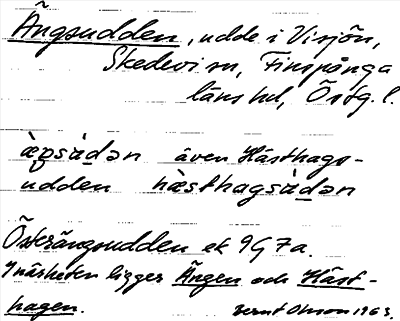 Ängsudden, udde i Visjön,
Skedevi sn, Finspånga
läns hd, Östg. l.
även Hästhags-
udden hàsthagsàdən
Österängsudden ek 9G7a.
I närheten ligger Ängen och Häst-
hagen. Bernt Olsson 1963.